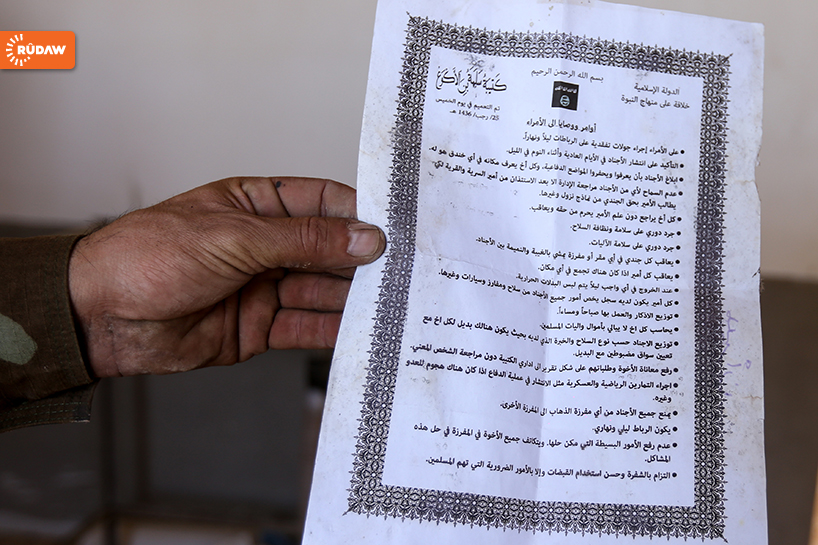 RÛDAW
بسم الله الرحمن الرحيم
الدولة الإسلامية
خلافة على منهاج النبوة
كتيبة سلمة بن الأكوع
تم التعميم في يوم الخميس
25/ رجب/ 1436 هـ
أوامر ووصايا الى الأمراء
● على الأمراء إجراء جولات تفقدية على الرباطات ليلاً ونهاراً.
● التأكيد على انتشار الأجناد في الأيام العادية وأثناء النوم في الليل.
● إبلاغ الأجناد بأن يعرفوا ويحفروا المواضع الدفاعية، وكل أخ يعرف مكانه في أي خندق هو له.
● عدم السماح لأي من الأجناد مراجعة الإدارة الا بعد الاستئذان من أمير السرية والقرية لكي
يطالب الأمير بحق الجندي من نماذج نزول وغيرها.
● كل أخ يراجع دون علم الأمير يحرم من حقه ويعاقب.
● جرد دوري على سلامة ونظافة السلاح.
● جرد دوري على سلامة الآليات.
● يعاقب كل جندي في أي مقر أو مفرزة يمشي بالغيبة والنميمة بين الأجناد.
● يعاقب كل أمير اذا كان هناك تجمع في أي مكان.
● عند الخروج في أي واجب ليلاً يتم لبس البدلات الحرارية.
● كل أمير يكون لديه سجل يخص أمور جميع الأجناد من سلاح ومفارز وسيارات وغيرها.
● توزيع الاذكار والعمل بها صباحاً ومساءاً.
● يحاسب كل اخ لا يبالي بأموال واليات المسلمين.
● توزيع الاجناد حسب نوع السلاح والخبرة الذي لديه بحيث يكون هنالك بديل لكل اخ مع
تعيين سواق مضبوطين مع البديل.
● رفع معاناة الأخوة وطلباتهم على شكل تقرير الى اداري الكتيبة دون مراجعة الشخص المعني.
● اجراء التمارين الرياضية والعسكرية مثل الانتشار في عملية الدفاع اذا كان هناك هجوم للعدو
وغيره.
● يمنع جميع الأجناد من أي مفرزة الذهاب الى المفرزة الأخرى.
● يكون الرباط ليلي ونهاري.
● عدم رفع الأمور البسيطة التي مكن حلها، ويتكاتف جميع الأخوة في المفرزة في حل هذه
المشاكل.
● التزام بالشفرة وحسن استخدام القبضات وإلا بالأمور الضرورية التي تهم المسلمين.